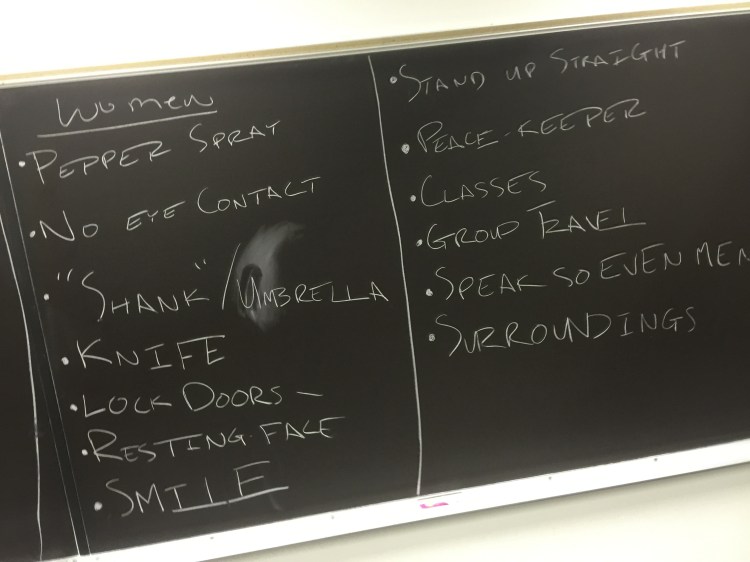 Women
• PEPPER SPRAY
• NO EYE CONTACT
• "SHANK" / UMBRELLA
• KNIFE
• LOCK DOORS –
• RESTING FACE
• SMILE
• STAND UP STRAIGHT
• PEACE-KEEPER
• CLASSES
• GROUP TRAVEL
• SPEAK SO EVEN MEN
• SURROUNDINGS